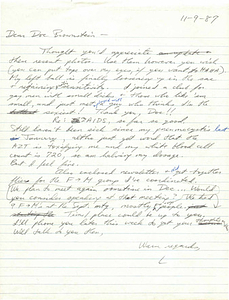 11-9-87
Dear Doc Brownstein —
Thought you'd appreciate
these recent photos. Use them however you wish
(you can put tape over my eyes if you want to
My left ball is finally loosening up in the sac
I joined a club for
gay men with small dicks! Those who like 'em
small, and just met a guy who thinks I'm the
Thank you, Doc!!
Re: AIDS, so far so good.
Still haven't been sick since my pneumocystis last
in January, altho just got word that the
AZT is toxifying me and my white blood cell
count is 720, so am halving my dosage.
But I feel fine.
The enclosed newsletter I put together
for the F→M group I've coordinated.
We plan to meet again sometime in Dec... Would
you consider speaking at that meeting? We had
9 F→M's at the Sept. mtg, mostly
Time/place could be up to you.
I'll phone you later this week to get your
Will talk to you then,
Warm regards,
L